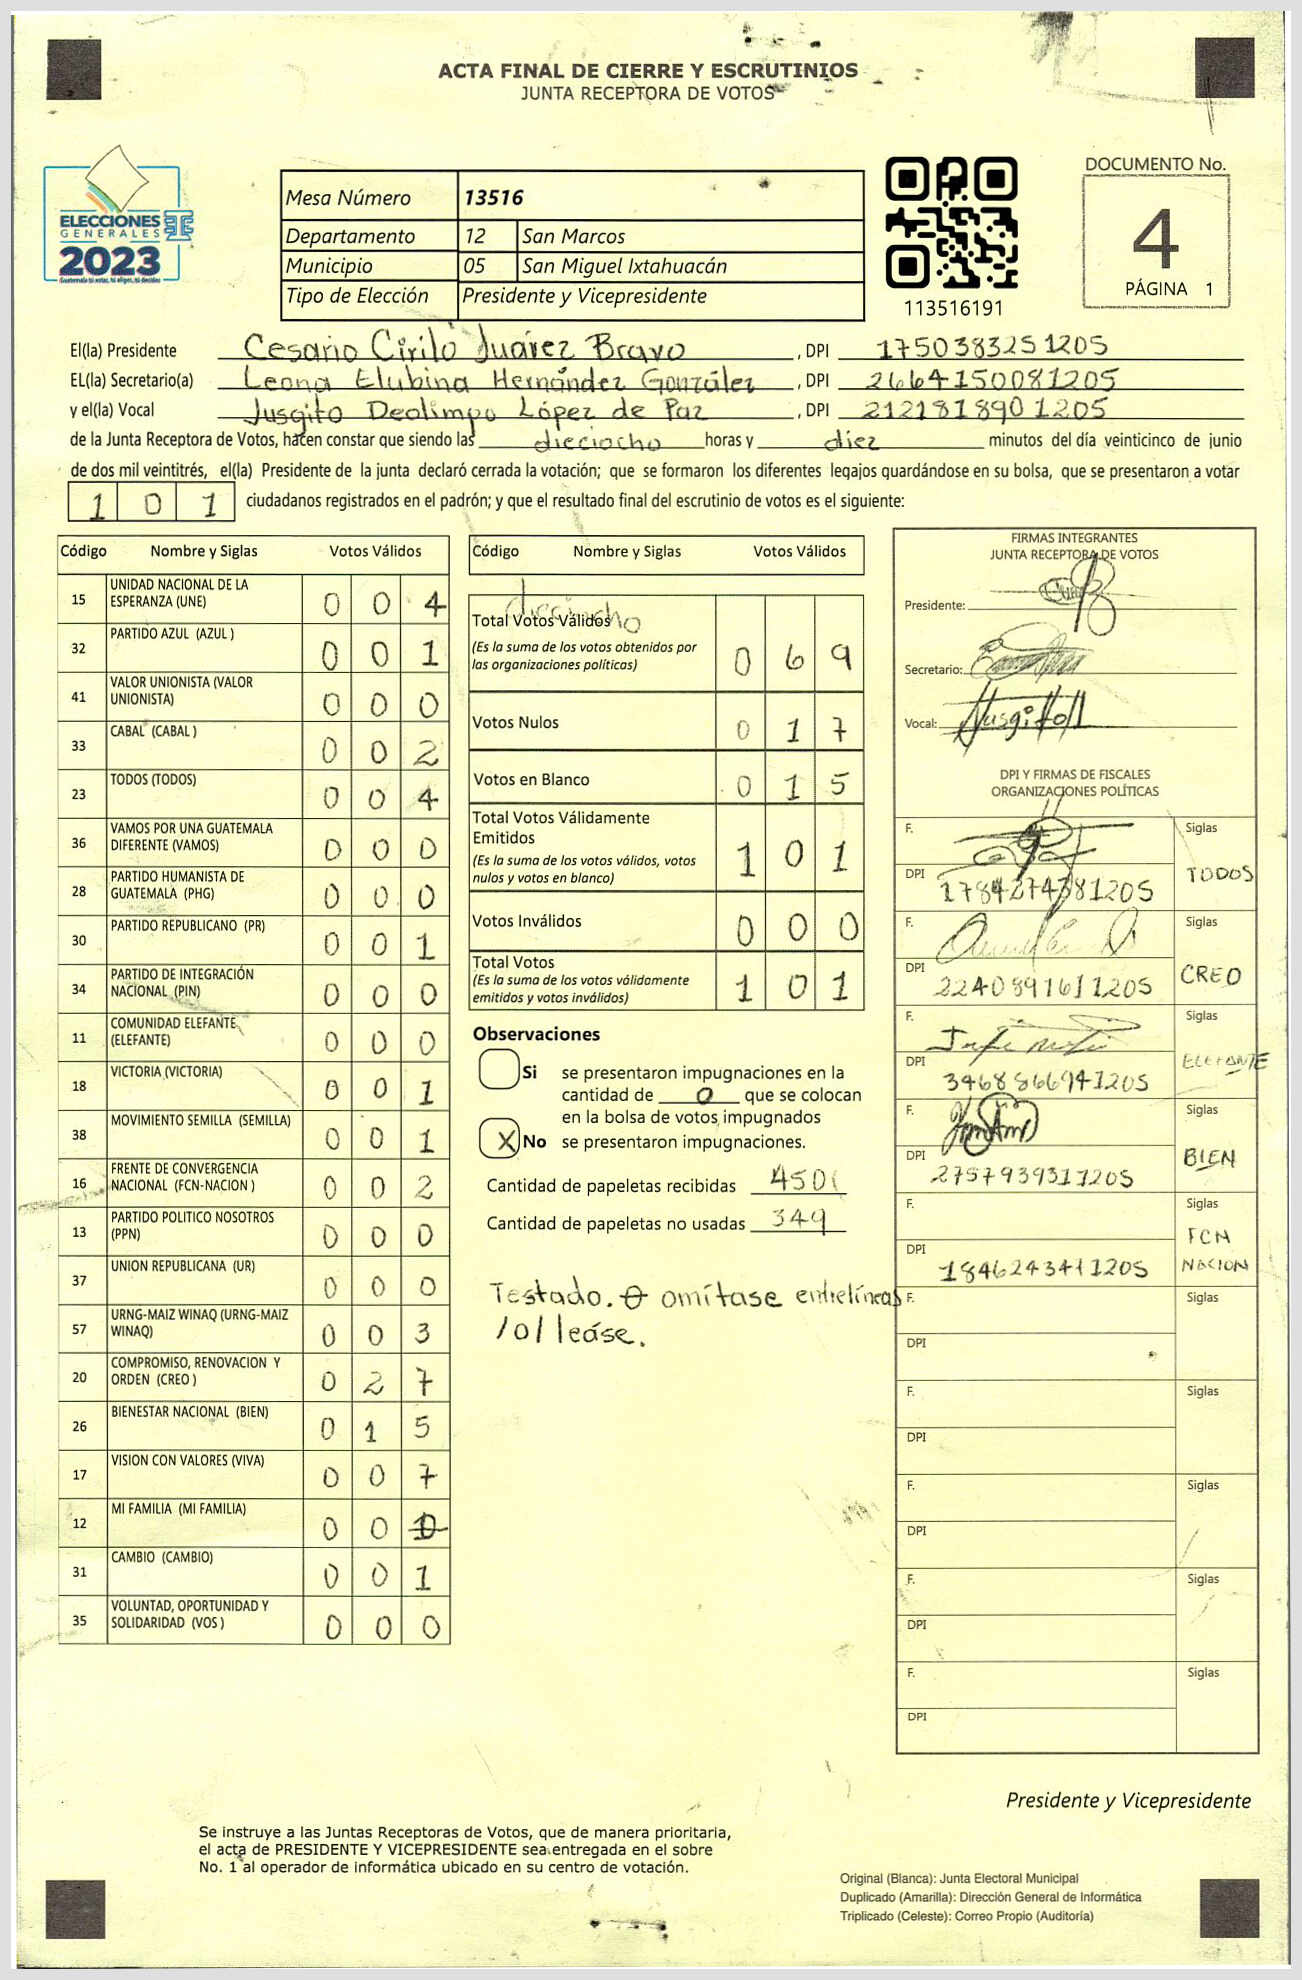 ACTA FINAL DE CIERRE Y ESCRUTINIOS
JUNTA RECEPTORA DE VOTOS
ELECCIONES
GENERALES
2023
Guatemala tú votas, tú eliges, tú decides
Mesa Número 13516
Departamento 12 San Marcos
Municipio 05 San Miguel Ixtahuacán
Tipo de Elección Presidente y Vicepresidente
113516191
DOCUMENTO No.
4
PÁGINA 1
El(la) Presidente Cesario Cirilo Juárez Bravo , DPI 1750383251205
EL(la) Secretario(a) Leona Elubina Hernández González , DPI 2664150081205
y el(la) Vocal Jusgito Deolimpo López de Paz , DPI 2121818901205
de la Junta Receptora de Votos, hacen constar que siendo las dieciocho horas y diez minutos del día veinticinco de junio
de dos mil veintitrés, el(la) Presidente de la junta declaró cerrada la votación; que se formaron los diferentes legajos guardándose en su bolsa, que se presentaron a votar
101 ciudadanos registrados en el padrón; y que el resultado final del escrutinio de votos es el siguiente:
Código Nombre y Siglas Votos Válidos
15 UNIDAD NACIONAL DE LA ESPERANZA (UNE) 0 0 4
32 PARTIDO AZUL (AZUL ) 0 0 1
41 VALOR UNIONISTA (VALOR UNIONISTA) 0 0 0
33 CABAL (CABAL ) 0 0 2
23 TODOS (TODOS) 0 0 4
36 VAMOS POR UNA GUATEMALA DIFERENTE (VAMOS) 0 0 0
28 PARTIDO HUMANISTA DE GUATEMALA (PHG) 0 0 0
30 PARTIDO REPUBLICANO (PR) 0 0 1
34 PARTIDO DE INTEGRACIÓN NACIONAL (PIN) 0 0 0
11 COMUNIDAD ELEFANTE (ELEFANTE) 0 0 0
18 VICTORIA (VICTORIA) 0 0 1
38 MOVIMIENTO SEMILLA (SEMILLA) 0 0 1
16 FRENTE DE CONVERGENCIA NACIONAL (FCN-NACION ) 0 0 2
13 PARTIDO POLITICO NOSOTROS (PPN) 0 0 0
37 UNION REPUBLICANA (UR) 0 0 0
57 URNG-MAIZ WINAQ (URNG-MAIZ WINAQ) 0 0 3
20 COMPROMISO, RENOVACION Y ORDEN (CREO ) 0 2 7
26 BIENESTAR NACIONAL (BIEN) 0 1 5
17 VISION CON VALORES (VIVA) 0 0 7
12 MI FAMILIA (MI FAMILIA) 0 0
31 CAMBIO (CAMBIO) 0 0 1
35 VOLUNTAD, OPORTUNIDAD Y SOLIDARIDAD (VOS ) 0 0 0
Código Nombre y Siglas Votos Válidos
dieciocho
Total Votos Válidos 0 6 9
(Es la suma de los votos obtenidos por
las organizaciones políticas)
Votos Nulos 0 1 7
Votos en Blanco 0 1 5
Total Votos Válidamente
Emitidos 1 0 1
(Es la suma de los votos válidos, votos
nulos y votos en blanco)
Votos Inválidos 0 0 0
Total Votos 1 0 1
(Es la suma de los votos válidamente
emitidos y votos inválidos)
Observaciones
Si se presentaron impugnaciones en la
cantidad de 0 que se colocan
en la bolsa de votos impugnados
X No se presentaron impugnaciones.
Cantidad de papeletas recibidas 450
Cantidad de papeletas no usadas 349
Testado. 0 omítase entrelíneas
/0/ leáse.
FIRMAS INTEGRANTES
JUNTA RECEPTORA DE VOTOS
Presidente:
Secretario:
Vocal:
DPI Y FIRMAS DE FISCALES
ORGANIZACIONES POLÍTICAS
F. Siglas
DPI 1784274381205 TODOS
F. Siglas
DPI 2240891611205 CREO
F. Siglas
DPI 3468866941205 ELEFANTE
F. Siglas
DPI 2757939311205 BIEN
F. Siglas
DPI 1846243411205 FCN NACION
F. Siglas
DPI
F. Siglas
DPI
F. Siglas
DPI
F. Siglas
DPI
F. Siglas
DPI
Presidente y Vicepresidente
Se instruye a las Juntas Receptoras de Votos, que de manera prioritaria,
el acta de PRESIDENTE Y VICEPRESIDENTE sea entregada en el sobre
No. 1 al operador de informática ubicado en su centro de votación.
Original (Blanca): Junta Electoral Municipal
Duplicado (Amarilla): Dirección General de Informática
Triplicado (Celeste): Correo Propio (Auditoría)